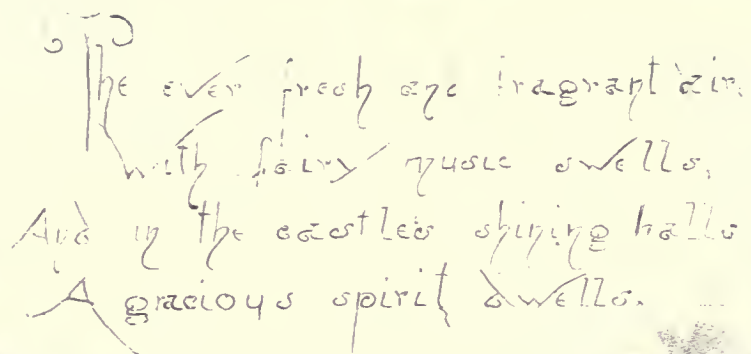 The ever fresh and fragrant air,
with fairy music swells,
And in the castles shining halls
A gracious spirit dwells.